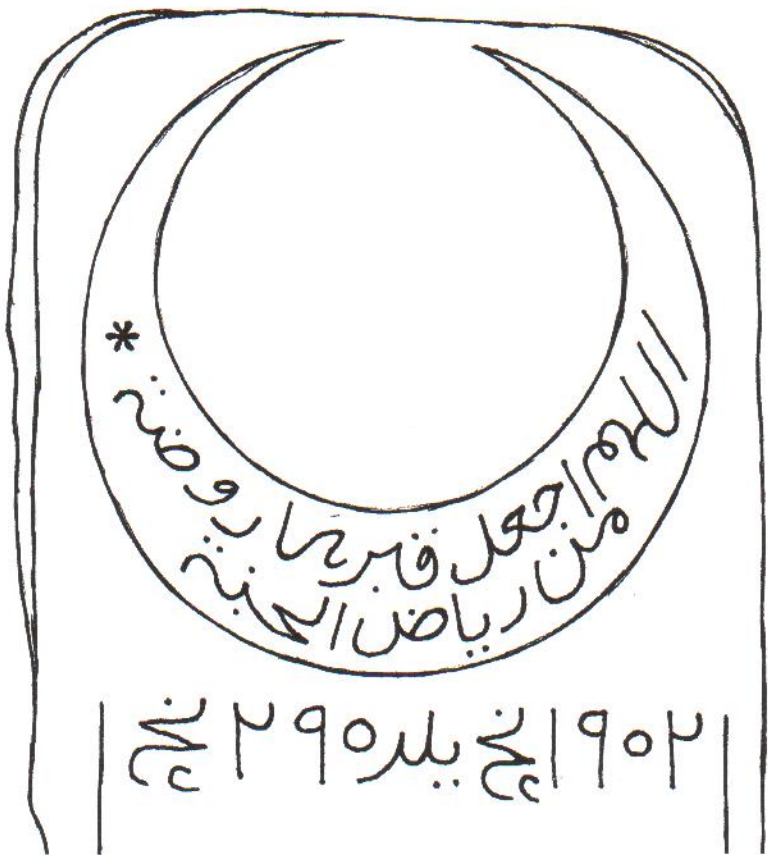 اللهم اجعل قبرها روضة *
من رياض الجنة
١٩٥٢ نچی يلده ٢٩ نچی